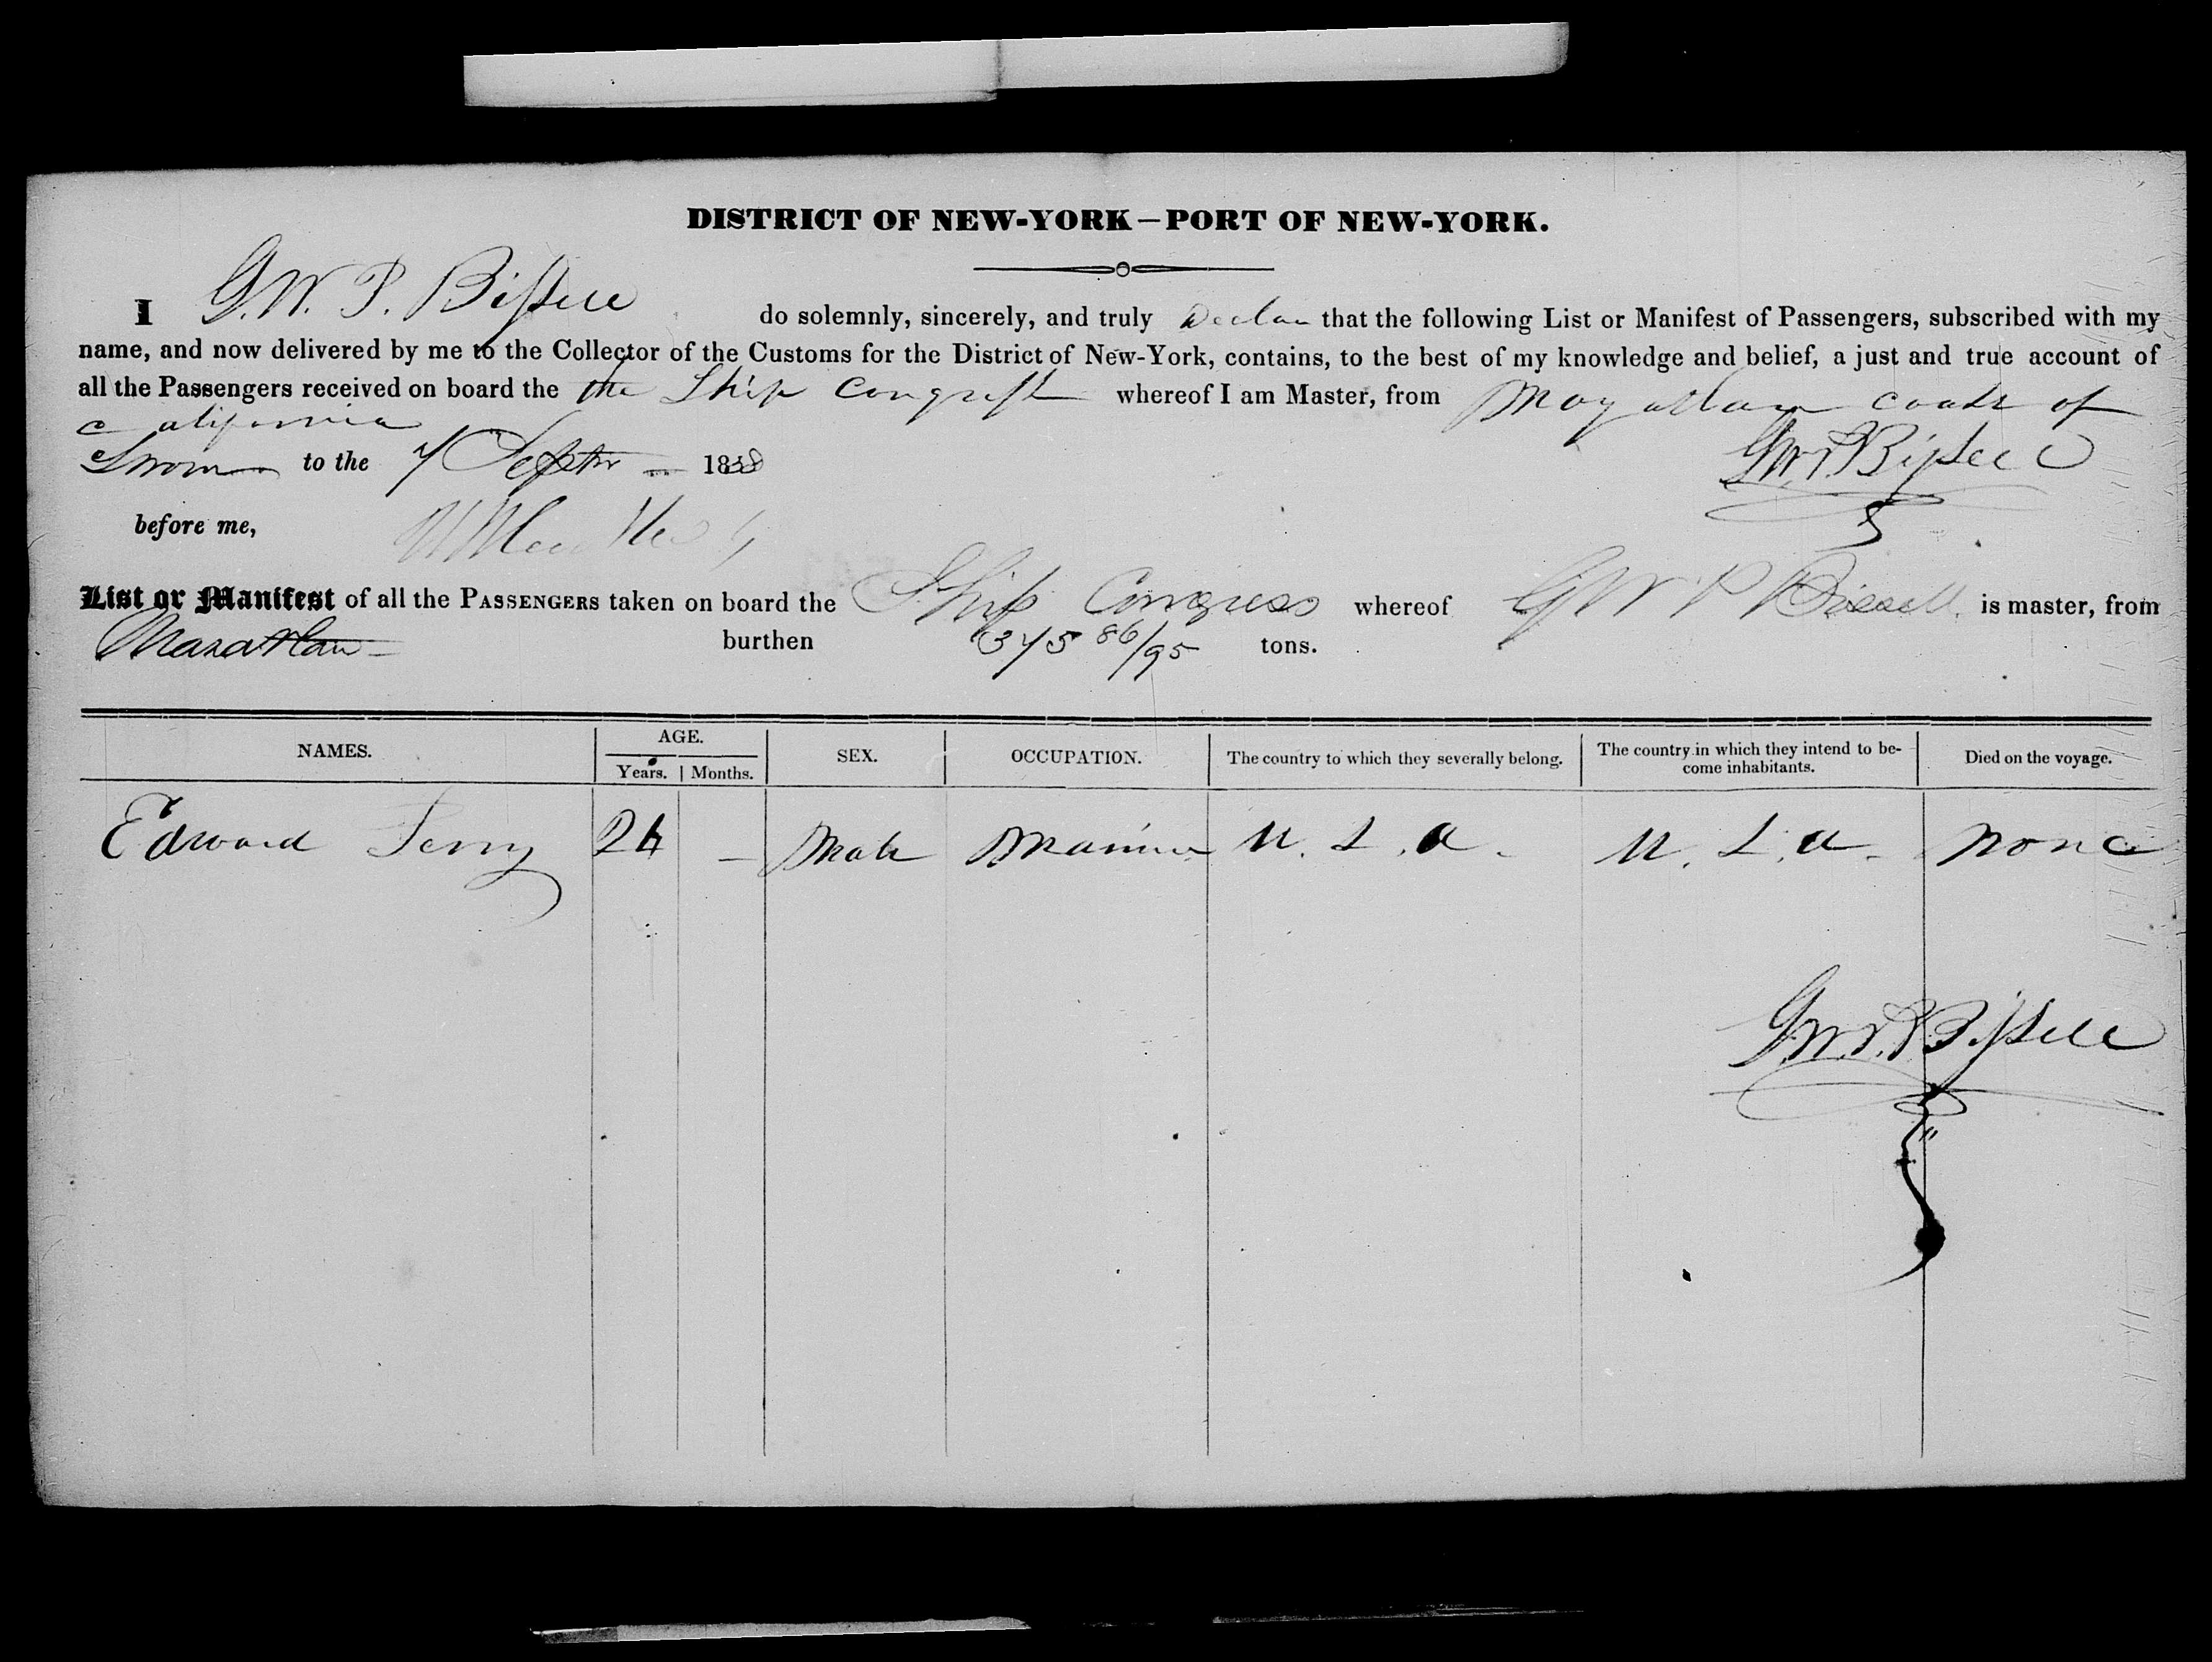 DISTRICT OF NEW-YORK—PORT OF NEW-YORK.
I G. W. P. Bissell do solemnly, sincerely, and truly Declare that the following List or Manifest of Passengers, subscribed with my
name, and now delivered by me to the Collector of the Customs for the District of New-York, contains, to the best of my knowledge and belief, a just and true account of
all the Passengers received on board the the Ship Congress whereof I am Master, from Mazatlan coast of
California
Sworn to the 7 Septr 1838
G. W. P. Bissell
before me,
List or Manifest of all the PASSENGERS taken on board the Ship Congress whereof G W P Bissell is master, from
Mazatlan burthen 375 86/95 tons.
NAMES. AGE. Years. Months. SEX. OCCUPATION. The country to which they severally belong. The country in which they intend to be-
come inhabitants. Died on the voyage.
Edward Perry 24 – Male Mariner U. S. A. U. S. A. None
G. W. P. Bissell